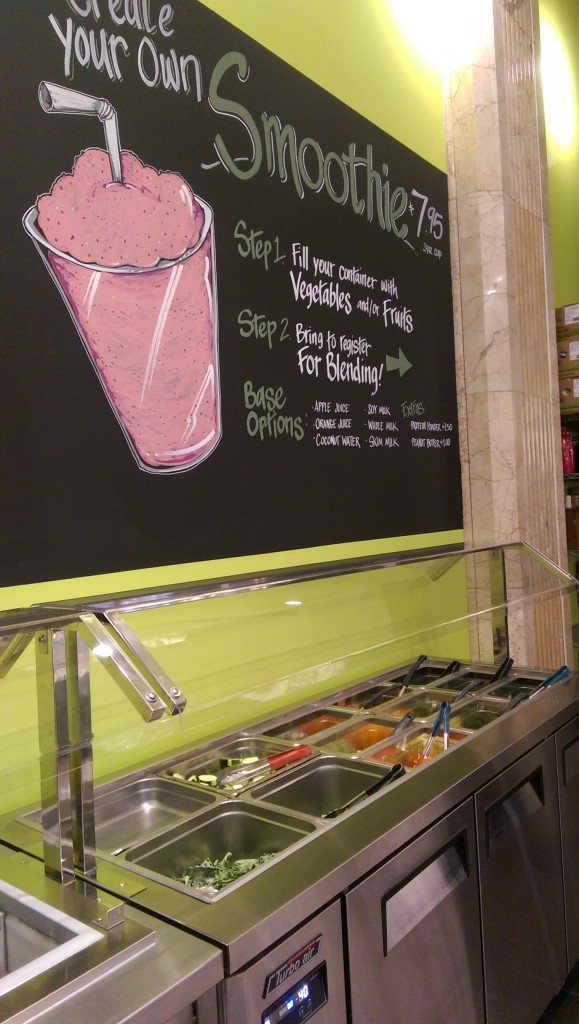 Create
Your Own
Smoothie
$7.95
24oz cup
Step 1. Fill your container with
Vegetables and/or Fruits
Step 2. Bring to register
For Blending!
Base
Options:
· Apple Juice
· Orange Juice
· Coconut Water
· Soy Milk
· Whole Milk
· Skim Milk
Extras:
Protein Powder +1.50
Peanut Butter +1.00
Turbo air
40